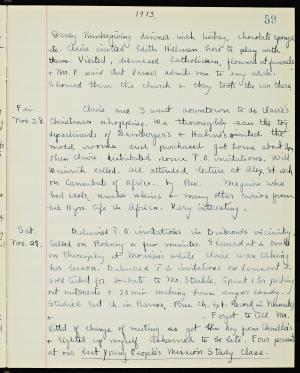 1913.
59
Dandy Thanksgiving dinner with turkey, chocolate sponge
etc. Claire invited Edith Hillman here to play with
them. Visited, discussed Catholicism, flowers at funerals
+ Mr. P. said that would admit me to any circle.
Showed them the church + they took the car there.
Fri. Claire and I went downtown to do Claire's
Nov. 28. Christmas shopping. We thoroughly saw the toy
departments of Bamberger's + Hahne's visited the
model rooms and purchased got home about
then Claire distributed some T.O. invitations. Will
called. All attended lecture at Alex. St. ch.
on Cannibals of Africa. by Rev. Maguire who
had idols, snake skins + many other curios from
his life in Africa. Very interesting.
Sat. Delivered T.O. invitations in vicinity
Nov. 29. Called on Rodney a few minutes. Glanced at a book
on Theosophy at while Claire was taking
her lesson. Delivered T.O. invitations on Vermont
sold ticket for to Mr. Spent 1 hr. picking
out nutmeats + 25 min. making brown sugar candy.
Studied
+ Forgot to tell Mr.
Littel of change of meeting so got the key from Chandler's
+ lighted up myself. Ashamed to be late. Four present
at our last Young People's Mission Study class.